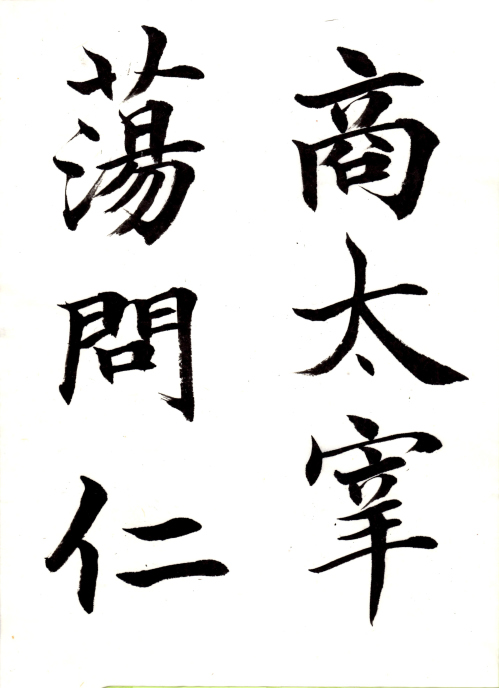 商太宰
蕩問仁